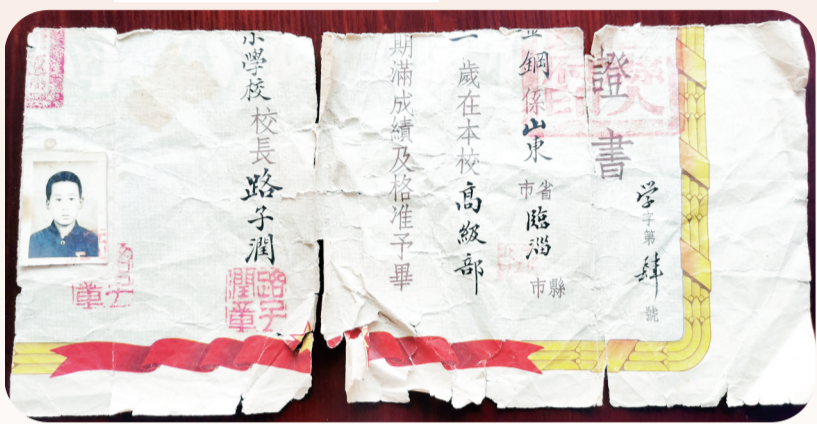 證書
学字第肆號
鋼係山東省市臨淄縣市
歲在本校高級部
期滿成績及格准予畢
小學校校長路子潤
路子潤章